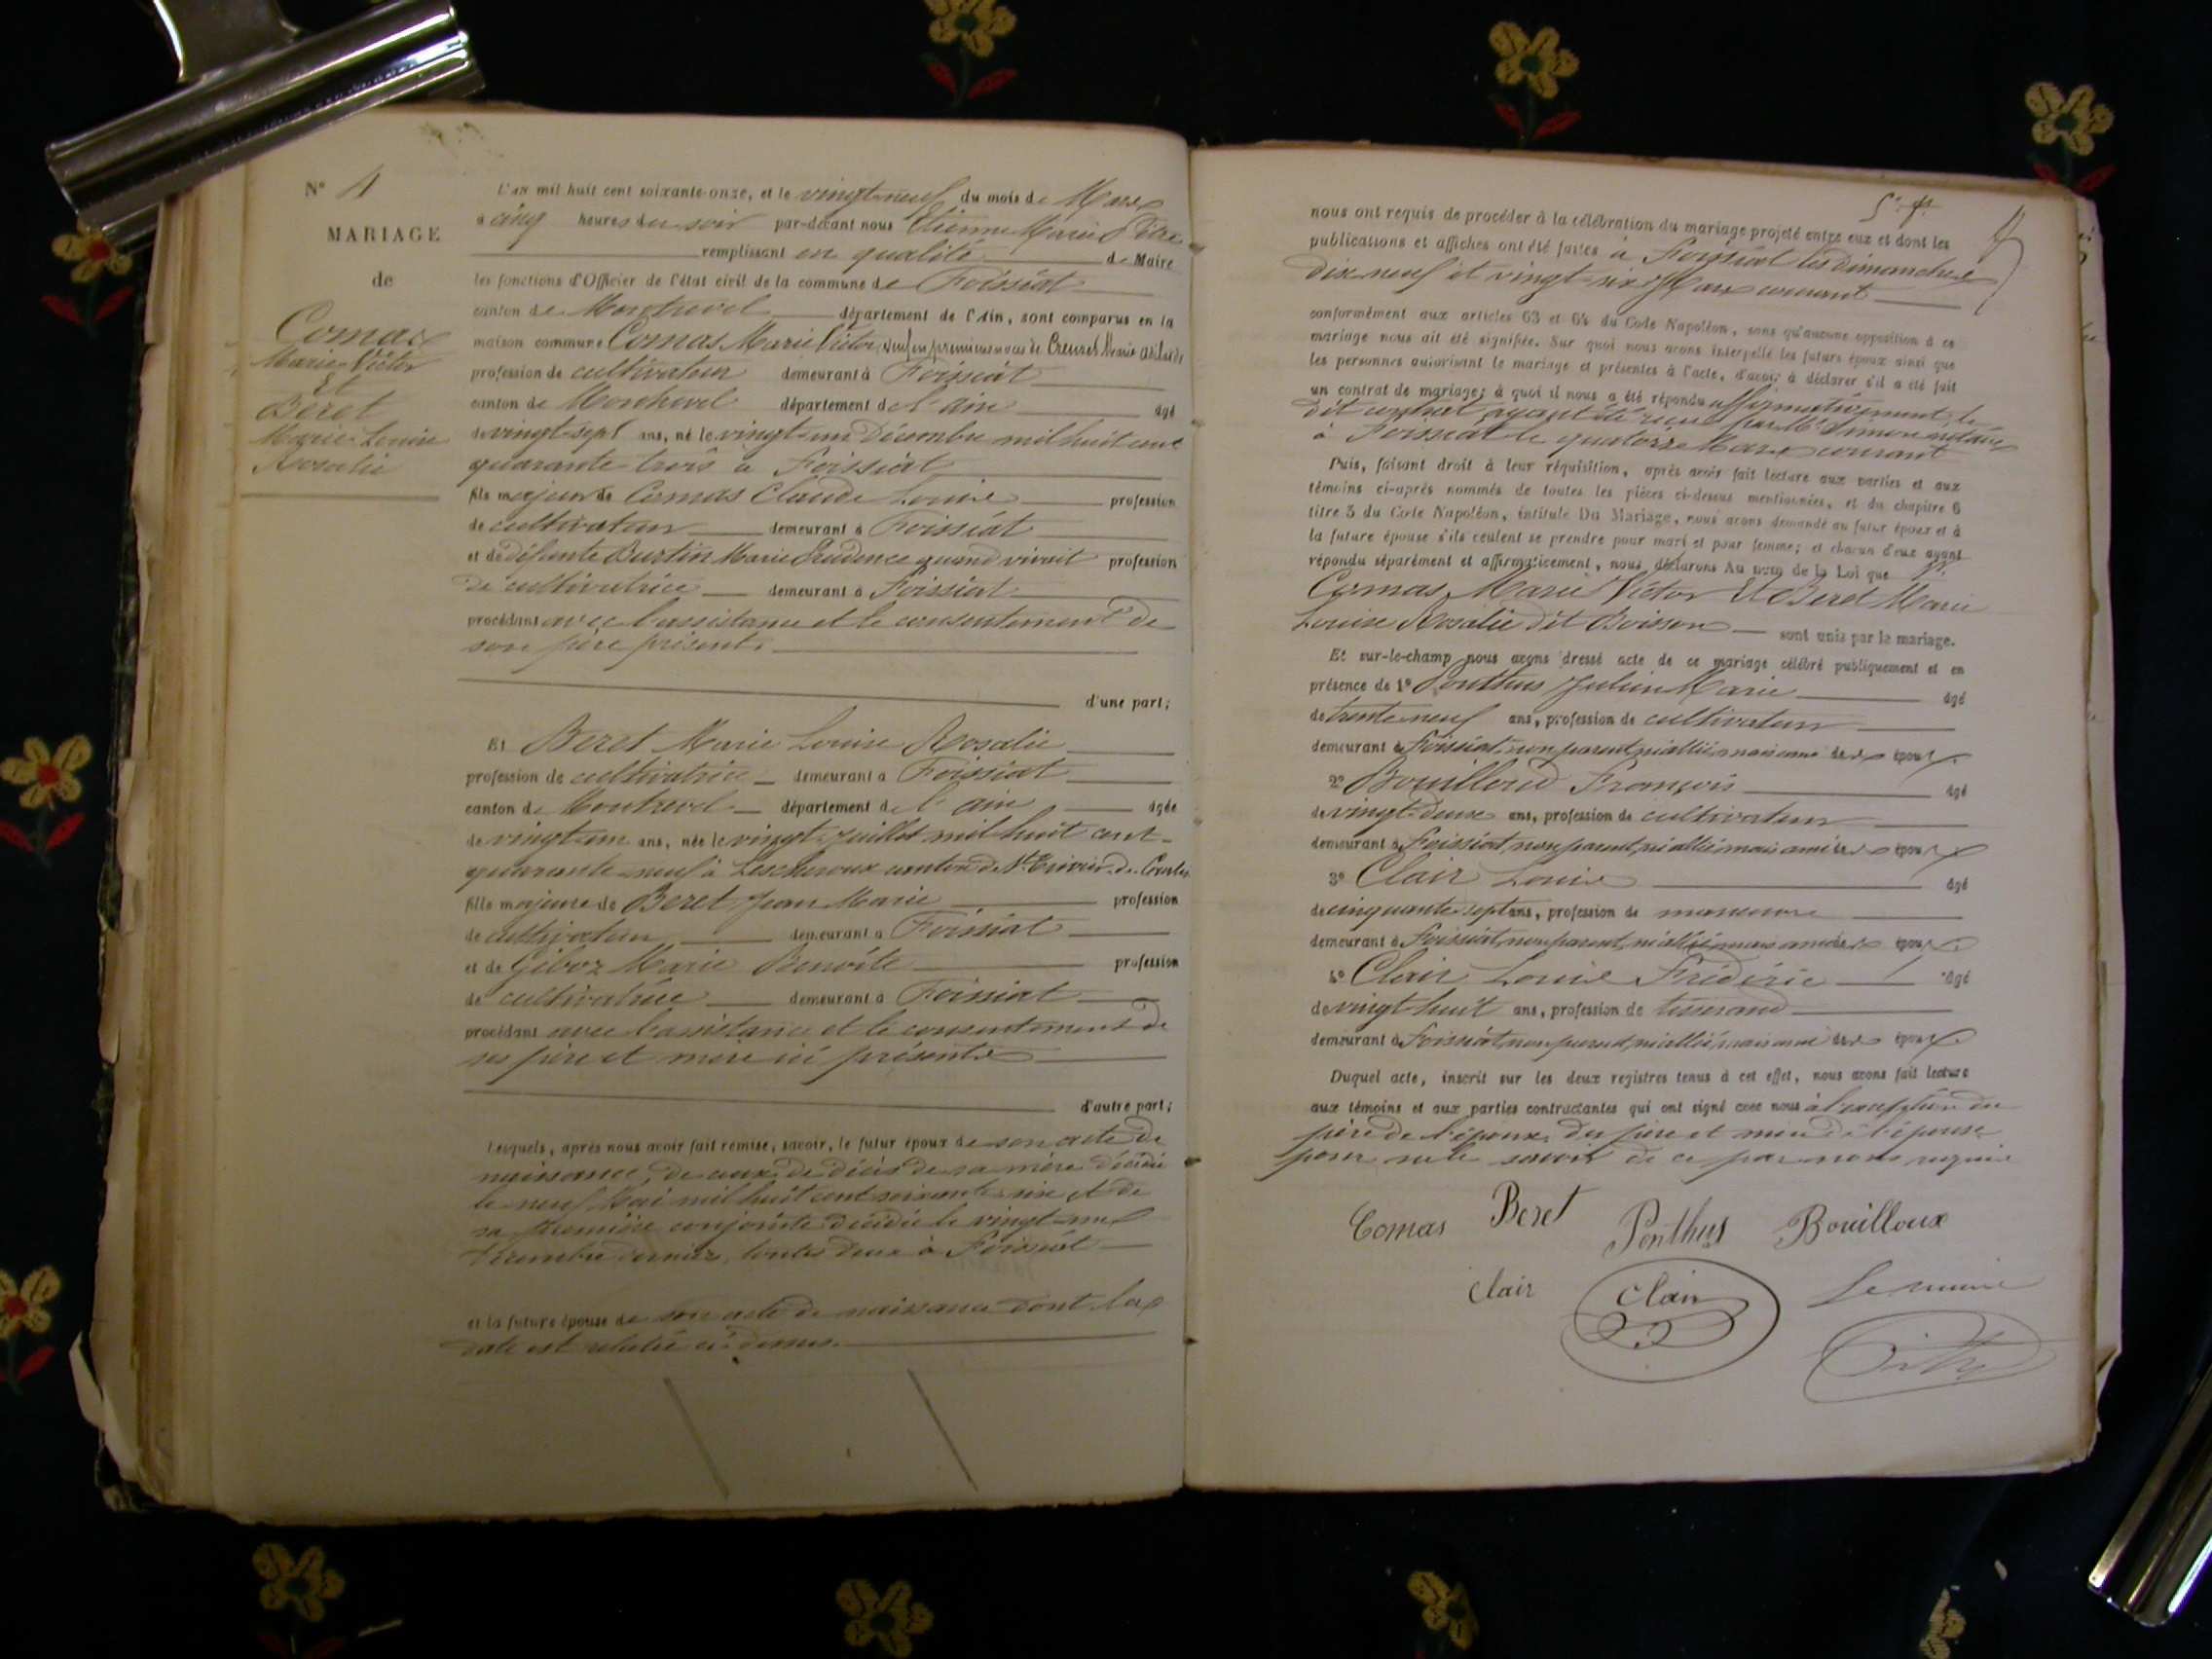 N° 4
MARIAGE
de
Comas
Marie Victor
Et
Beret
Marie Louise
Rosalie
L'an mil huit cent soixante-onze, et le vingt-neuf du mois de Mars
à cinq heures du soir par-devant nous Etienne Marie Pitre
remplissant en qualité de Maire
les fonctions d'Officier de l'état civil de la commune de Foissiat
canton de Montrevel département de l'Ain, sont comparus en la
maison commune Comas Marie Victor, veuf en premières noces de Creuzet Marie
profession de cultivateur demeurant à Foissiat
canton de Montrevel département de l'ain âgé
de vingt-sept ans, né le vingt-un Décembre mil huit cent
quarante-trois à Foissiat
fils majeur de Comas Claude Louis profession
de cultivateur demeurant à Foissiat
et de défunte Burtin Marie Prudence quand vivait profession
de cultivatrice demeurant à Foissiat
procédant avec l'assistance et le consentement de
son père présent.
d'une part;
Et Beret Marie Louise Rosalie
profession de cultivatrice demeurant à Foissiat
canton de Montrevel département de l'ain âgée
de vingt-un ans, née le vingt Juillet mil huit cent
quarante-neuf à Lescheroux canton de St Trivier-de-Courtes
fille majeure de Beret Jean Marie profession
de cultivateur demeurant à Foissiat
et de Giboz Marie Benoîte profession
de cultivatrice demeurant à Foissiat
procédant avec l'assistance et le consentement de
ses père et mère ici présents
d'autre part;
Lesquels, après nous avoir fait remise, savoir, le futur époux de son acte de
naissance, de ceux de décès de sa mère décédée
le neuf Mai mil huit cent soixante-six et de
sa première conjointe décédée le vingt-neuf
Décembre dernier, toutes deux à Foissiat
et la future épouse de son acte de naissance dont la
date est relatée ci-dessus.
nous ont requis de procéder à la célébration du mariage projeté entre eux et dont les
publications et affiches ont été faites à Foissiat les Dimanches
dix neuf et vingt-six Mars courant
conformément aux articles 63 et 64 du Code Napoléon, sans qu'aucune opposition à ce
mariage nous ait été signifiée. Sur quoi nous avons interpellé les futurs époux ainsi que
les personnes autorisant le mariage et présentes à l'acte, d'avoir à déclarer s'il a été fait
un contrat de mariage; à quoi il nous a été répondu affirmativement, le
dit contrat ayant été reçu par Me Simon notaire
à Foissiat le quatorze Mars courant
Puis, faisant droit à leur réquisition, après avoir fait lecture aux parties et aux
témoins ci-après nommés de toutes les pièces ci-dessus mentionnées, et du chapitre 6
titre 5 du Code Napoléon, intitulé Du Mariage, nous avons demandé au futur époux et à
la future épouse s'ils veulent se prendre pour mari et pour femme; et chacun d'eux ayant
répondu séparément et affirmativement, nous déclarons Au nom de la Loi que
Comas Marie Victor Et Beret Marie
Louise Rosalie dit Boisson sont unis par le mariage.
Et sur-le-champ nous avons dressé acte de ce mariage célébré publiquement et en
présence de 1° Ponthus Julien Marie âgé
de trente-neuf ans, profession de cultivateur
demeurant à Foissiat, non parent, ni allié, mais ami des époux.
2° Bouilloud François âgé
de vingt-deux ans, profession de cultivateur
demeurant à Foissiat, non parent, ni allié, mais ami des époux
3° Clair Louis âgé
de cinquante-sept ans, profession de
demeurant à Foissiat, non parent, ni allié, mais ami des époux.
4° Clair Louis Frédéric âgé
de vingt-huit ans, profession de tisserand
demeurant à Foissiat, non parent, ni allié, mais ami des époux.
Duquel acte, inscrit sur les deux registres tenus à cet effet, nous avons fait lecture
aux témoins et aux parties contractantes qui ont signé avec nous à l'exception du
père de l'époux, des père et mère de l'épouse
pour ne le savoir de ce par nous requis
Comas Beret Ponthus Bouilloux
Clair Clair Le maire
Pitre